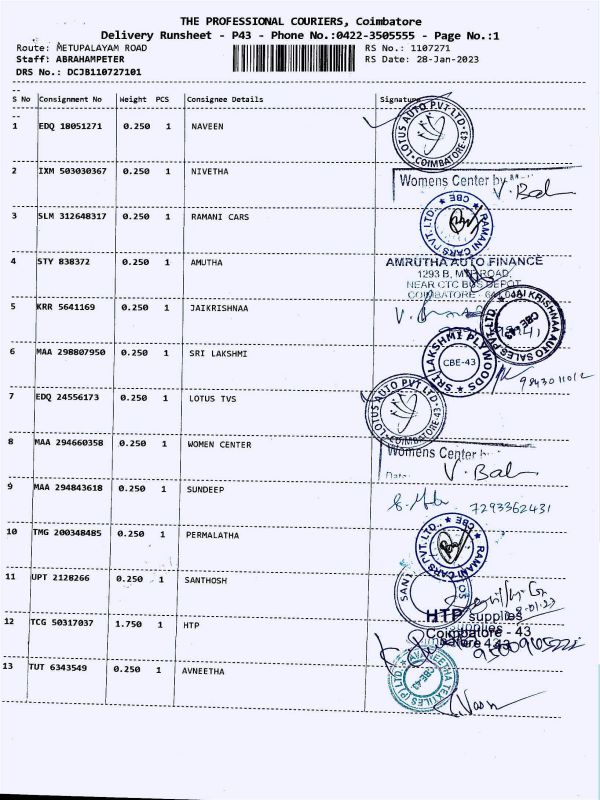 THE PROFESSIONAL COURIERS, Coimbatore
Delivery Runsheet - P43 - Phone No.:0422-3505555 - Page No.:1
Route: METUPALAYAM ROAD RS No.: 1107271
Staff: ABRAHAMPETER RS Date: 28-Jan-2023
DRS No.: DCJB110727101
S No Consignment No Weight PCS Consignee Details Signature
1 EDQ 18051271 0.250 1 NAVEEN
LOTUS AUTO PVT LTD. COIMBATORE-43
2 IXM 503030367 0.250 1 NIVETHA
Womens Center by
V. Bal
3 SLM 312648317 0.250 1 RAMANI CARS
RAMANI CARS PVT. LTD., CBE
4 STY 838372 0.250 1 AMUTHA
AMRUTHA AUTO FINANCE
1293 B, MTP ROAD,
NEAR CTC BUS DEPOT
COIMBATORE - 641 043
5 KRR 5641169 0.250 1 JAIKRISHNAA
JAI KRISHNAA AUTO SALES PVT. LTD. CBE-43
6 MAA 298807950 0.250 1 SRI LAKSHMI
SRI LAKSHMI PLYWOODS CBE-43
7 EDQ 24556173 0.250 1 LOTUS TVS
LOTUS AUTO PVT LTD. COIMBATORE-43
8 MAA 294660358 0.250 1 WOMEN CENTER
Womens Center
Date:
V. Bal
9 MAA 294843618 0.250 1 SUNDEEP
7293362431
10 TMG 200348485 0.250 1 PERMALATHA
RAMANI CARS PVT. LTD., CBE
11 UPT 2128266 0.250 1 SANTHOSH
12 TCG 50317037 1.750 1 HTP
HTP supplies
Coimbatore - 43
13 TUT 6343549 0.250 1 AVNEETHA
AVNEETHA TEXTILES (P) LTD. CBE-43